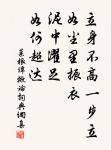 立身不高一步立
如尘里振衣
泥中濯足
如何超达
菜根谭